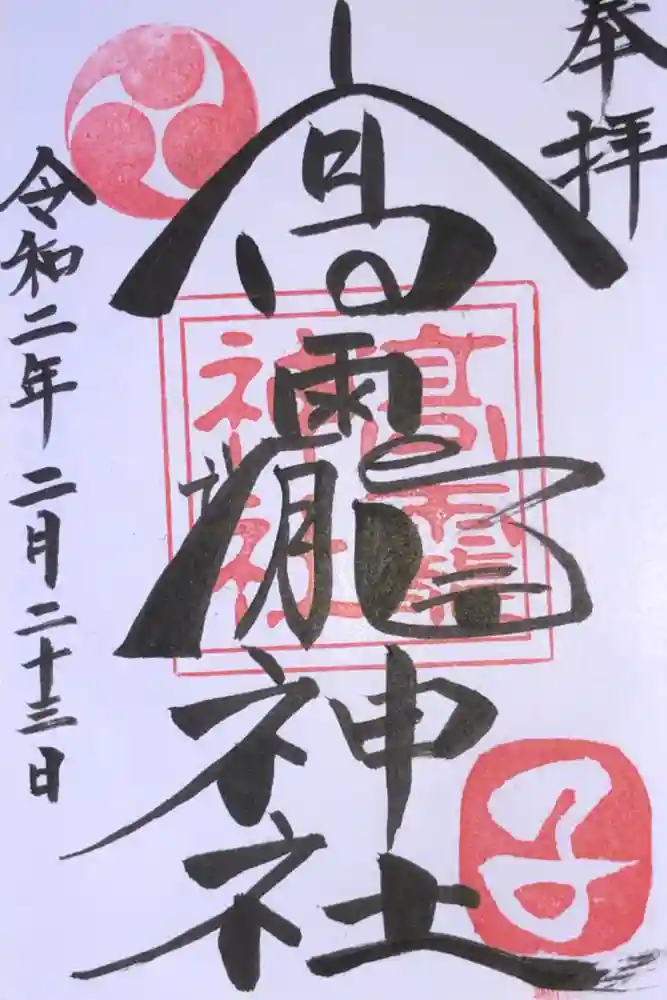 奉拝
高龗神社
高龗神社
子
令和二年二月二十三日